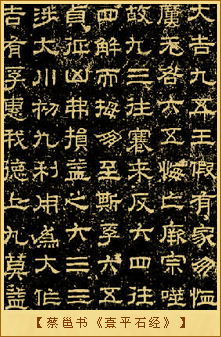 大吉九五王假有家勿恤
厲无咎六五悔亡厥宗噬
故九三往蹇来反六四往
四解而拇朋至斯孚六五
貞征凶弗損益之六三三
涉大川初九利用為大作
吉有孚惠我德上九莫益
【蔡邕书《熹平石经》】